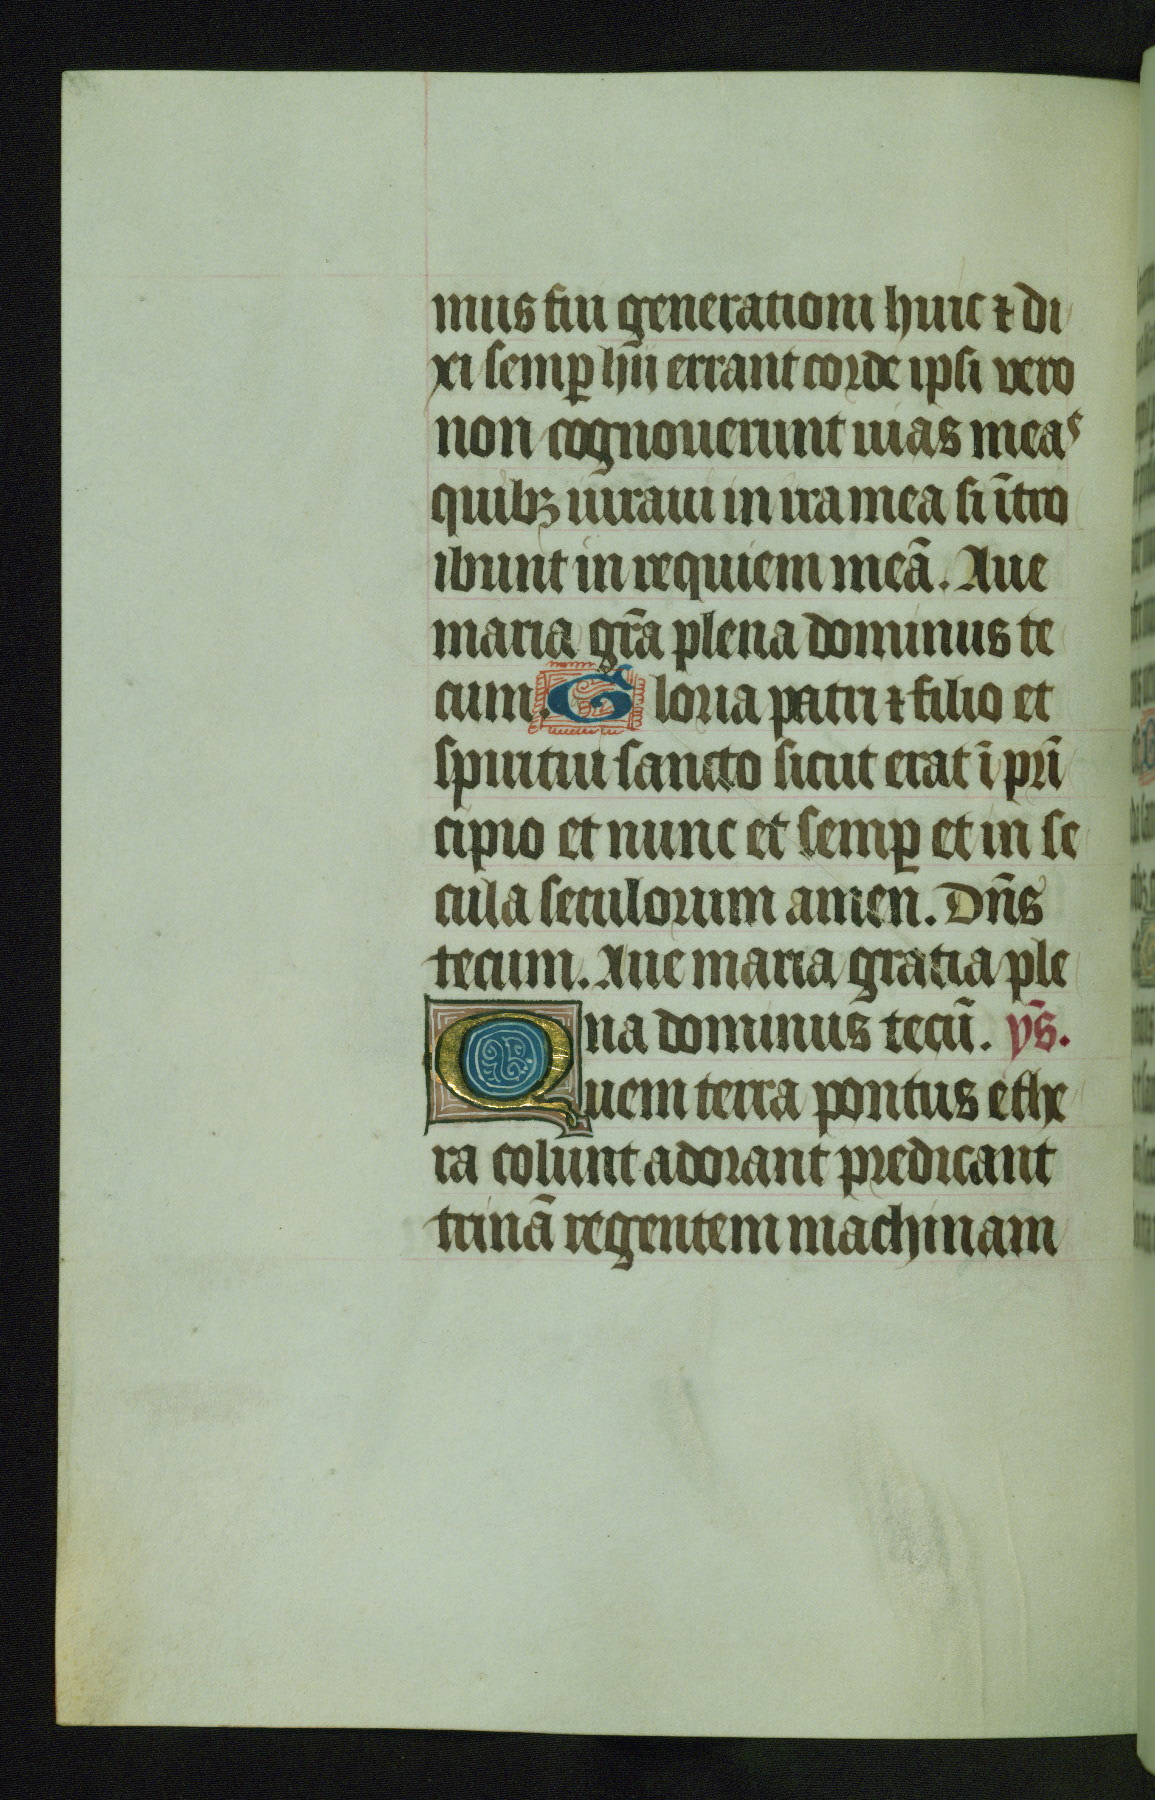 mus fui generationi huic ⁊ di
xi semꝑ hii errant corde ipsi vero
non cognouerunt uias meas
quibꝫ iuraui in ira mea si ītro
ibunt in requiem meā. Aue
maria gr̄a plena dominus te
cum. Gloria patri ⁊ filio et
spiritui sancto sicut erat ī pri
cipio et nunc et semꝑ et in se
cula seculorum amen. Dn̄s
tecum. Aue maria gratia ple
na dominus tecū. ym̄s.
Quem terra pontus ethe
ra colunt adorant predicant
trinā regentem machinam